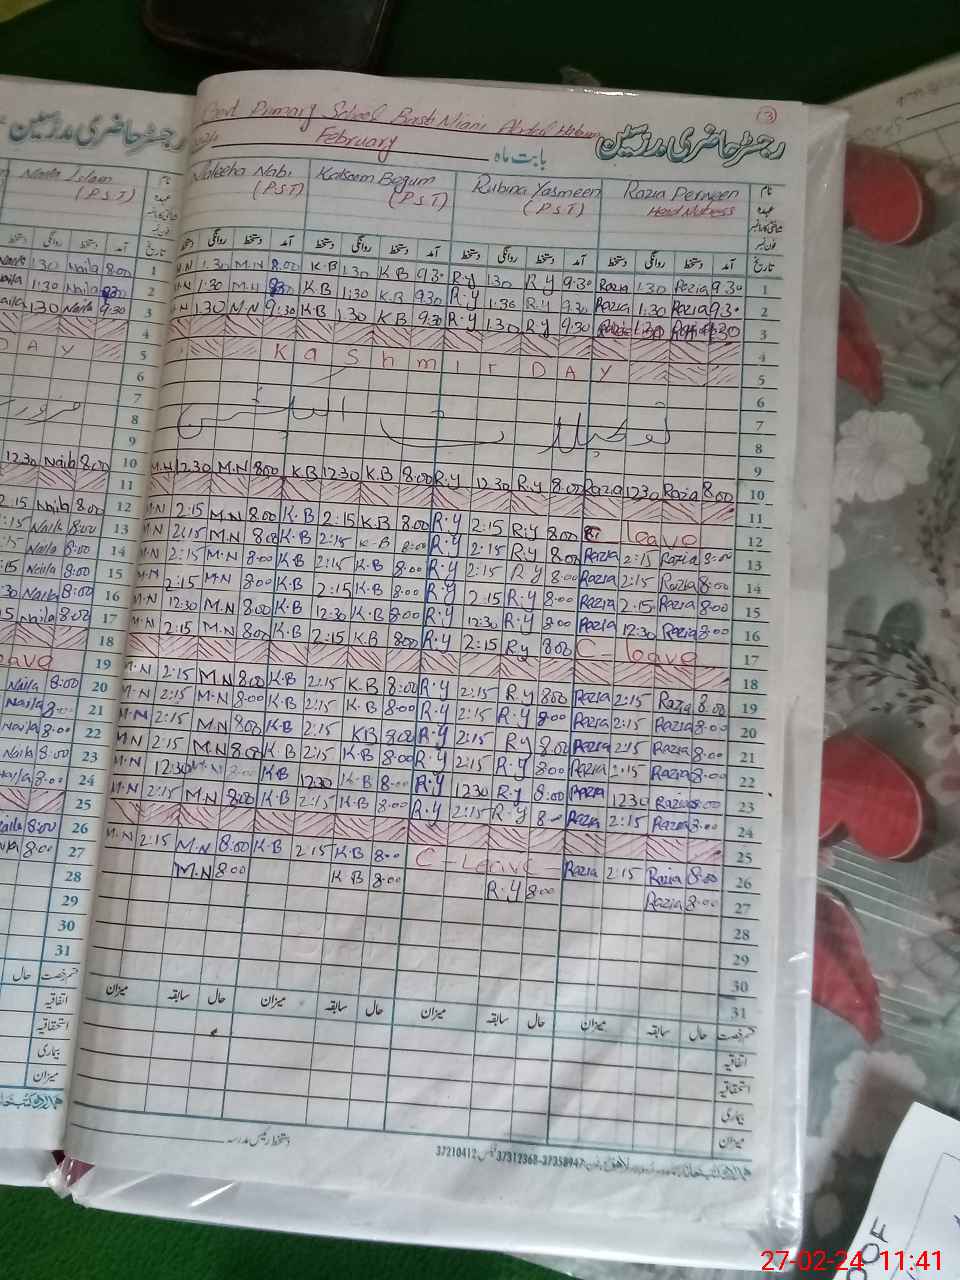 (3)
Govt Primary School Basti Miani Abdul
رجسٹر حاضری مدرسین
رجسٹر حاضری مدرسین
February بابت ماہ
Naila Islam Maleeha Nabi Kalsoom Begum Rubina Yasmeen Razia Perveen نام
(P.S.T) (P.S.T) (P.S.T) (P.S.T) Head Mistress عہدہ
دستخط روانگی دستخط آمد تاریخ دستخط روانگی دستخط آمد دستخط روانگی دستخط آمد دستخط روانگی دستخط آمد دستخط روانگی دستخط آمد تاریخ
1:30 Naila 8:00 1 M.N 1:30 M.N 8:00 K.B 1:30 K.B 9:30 R.y 1:30 R.y 9:30 Razia 1:30 Razia 9:30 1
1:30 Naila 9:30 2 M.N 1:30 M.N 9:30 K.B 1:30 K.B 9:30 R.y 1:30 R.y 9:30 Razia 1:30 Razia 9:30 2
1:30 Naila 9:30 3 M.N 1:30 M.N 9:30 K.B 1:30 K.B 9:30 R.y 1:30 R.y 9:30 Razia 1:30 Razia 9:30 3
4 4
DAY 5 Kashmir DAY 5
6 6
7 7
8 8
9 9
12:30 Naila 8:00 10 M.N 12:30 M.N 8:00 K.B 12:30 K.B 8:00 R.y 12:30 R.y 8:00 Razia 12:30 Razia 8:00 10
11 11
2:15 Naila 8:00 12 M.N 2:15 M.N 8:00 K.B 2:15 K.B 8:00 R.y 2:15 R.y 8:00 leave 12
:15 Naila 8:00 13 M.N 2:15 M.N 8:00 K.B 2:15 K.B 8:00 R.y 2:15 R.y 8:00 Razia 2:15 Razia 8:00 13
:15 Naila 8:00 14 M.N 2:15 M.N 8:00 K.B 2:15 K.B 8:00 R.y 2:15 R.y 8:00 Razia 2:15 Razia 8:00 14
:15 Naila 8:00 15 M.N 2:15 M.N 8:00 K.B 2:15 K.B 8:00 R.y 2:15 R.y 8:00 Razia 2:15 Razia 8:00 15
:30 Naila 8:00 16 M.N 12:30 M.N 8:00 K.B 12:30 K.B 8:00 R.y 12:30 R.y 8:00 Razia 12:30 Razia 8:00 16
Naila 8:00 17 M.N 2:15 M.N 8:00 K.B 2:15 K.B 8:00 R.y 2:15 R.y 8:00 C-leave 17
18 18
leave 19 M.N 2:15 M.N 8:00 K.B 2:15 K.B 8:00 R.y 2:15 R.y 8:00 Razia 2:15 Razia 8:00 19
Naila 8:00 20 M.N 2:15 M.N 8:00 K.B 2:15 K.B 8:00 R.y 2:15 R.y 8:00 Razia 2:15 Razia 8:00 20
Naila 8:00 21 M.N 2:15 M.N 8:00 K.B 2:15 K.B 8:00 R.y 2:15 R.y 8:00 Razia 2:15 Razia 8:00 21
Naila 8:00 22 M.N 2:15 M.N 8:00 K.B 2:15 K.B 8:00 R.y 2:15 R.y 8:00 Razia 2:15 Razia 8:00 22
Naila 8:00 23 M.N 12:30 8:00 K.B 12:30 K.B 8:00 R.y 12:30 R.y 8:00 Razia 12:30 Razia 8:00 23
Naila 8:00 24 M.N 2:15 M.N 8:00 K.B 2:15 K.B 8:00 R.y 2:15 R.y 8:00 Razia 2:15 Razia 8:00 24
25 25
Naila 8:00 26 M.N 2:15 M.N 8:00 K.B 2:15 K.B 8:00 C-Leave Razia 2:15 Razia 8:00 26
8:00 27 M.N 8:00 K.B 8:00 R.y 8:00 Razia 8:00 27
28 28
29 29
30 30
31 31
حال قسم رخصت میزان سابقہ حال میزان سابقہ حال میزان سابقہ حال میزان سابقہ حال قسم رخصت
اتفاقیہ اتفاقیہ
استحقاقیہ استحقاقیہ
بیماری بیماری
میزان میزان
دستخط رئیس مدرسہ
37210412 37312368-3735894
OOF
27-02-24 11:41